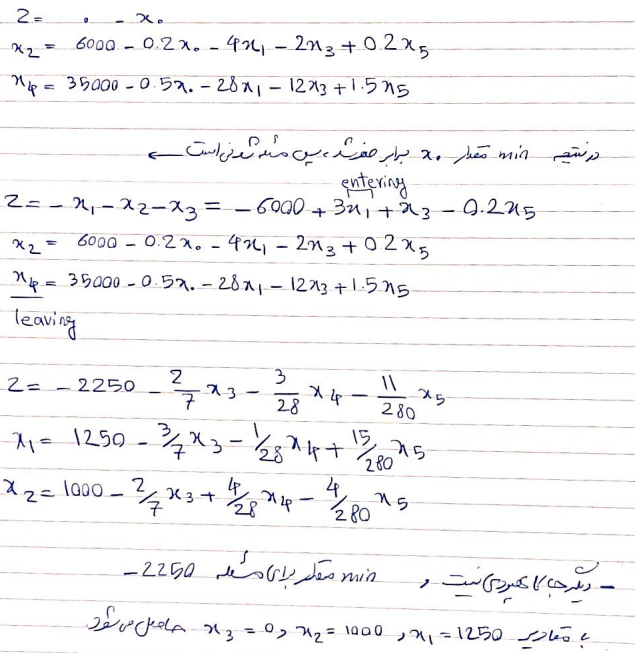 Z = 0 - x₀
x₂ = 6000 - 0.2x₀ - 4x₁ - 2x₃ + 0.2x₅
x₄ = 35000 - 0.5x₀ - 28x₁ - 12x₃ + 1.5x₅
در نتیجه min مقدار x₀ برابر صفر شد، پس مسئله شدنی است ←
entering
Z = - x₁ - x₂ - x₃ = - 6000 + 3x₁ + x₃ - 0.2x₅
x₂ = 6000 - 0.2x₀ - 4x₁ - 2x₃ + 0.2x₅
x₄ = 35000 - 0.5x₀ - 28x₁ - 12x₃ + 1.5x₅
leaving
Z = - 2250 - 2/7 x₃ - 3/28 x₄ - 11/280 x₅
x₁ = 1250 - 3/7 x₃ - 1/28 x₄ + 15/280 x₅
x₂ = 1000 - 2/7 x₃ + 4/28 x₄ - 4/280 x₅
- دیگر جای بهبودی نیست و min مقدار برای مسئله -2250
با مقادیر x₁ = 1250 و x₂ = 1000 و x₃ = 0 حاصل می شود